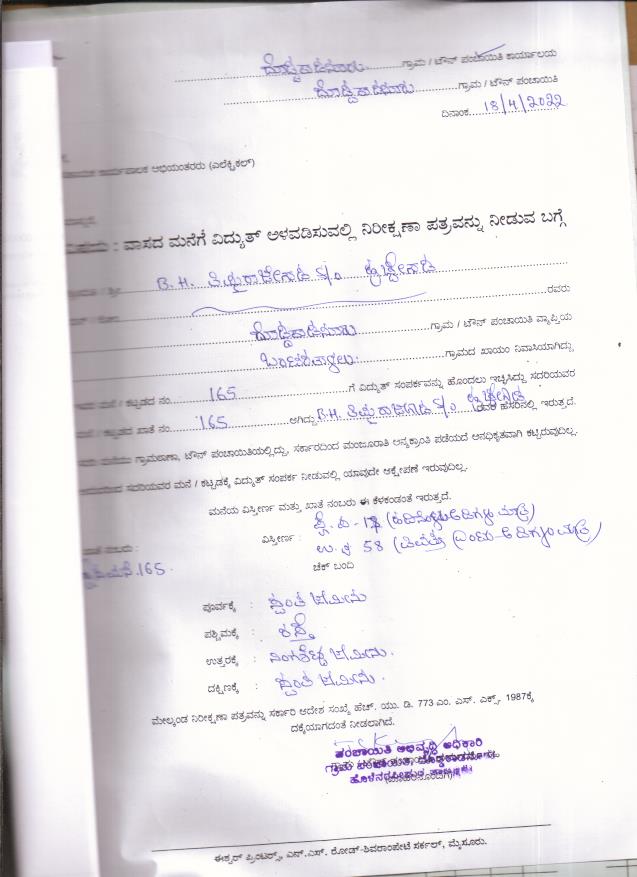 ದೊಡ್ಡಕಾಡನೂರು ಗ್ರಾಮ / ಟೌನ್ ಪಂಚಾಯಿತಿ ಕಾರ್ಯಾಲಯ
ದೊಡ್ಡಕಾಡನೂರು ಗ್ರಾಮ / ಟೌನ್ ಪಂಚಾಯಿತಿ
ದಿನಾಂಕ 18/4/2022
ಕಾರ್ಯಪಾಲಕ ಅಭಿಯಂತರರು (ಎಲೆಕ್ಟ್ರಿಕಲ್)
: ವಾಸದ ಮನೆಗೆ ವಿದ್ಯುತ್ ಅಳವಡಿಸುವಲ್ಲಿ ನಿರೀಕ್ಷಣಾ ಪತ್ರವನ್ನು ನೀಡುವ ಬಗ್ಗೆ
B.H. S/o
ರವರು
ದೊಡ್ಡಕಾಡನೂರು ಗ್ರಾಮ / ಟೌನ್ ಪಂಚಾಯಿತಿ ವ್ಯಾಪ್ತಿಯ
ಗ್ರಾಮದ ಖಾಯಂ ನಿವಾಸಿಯಾಗಿದ್ದು
ಮನೆ / ಕಟ್ಟಡದ ನಂ. 165 ಗೆ ವಿದ್ಯುತ್ ಸಂಪರ್ಕವನ್ನು ಹೊಂದಲು ಇಚ್ಛಿಸಿದ್ದು ಸದರಿಯವರ
/ ಕಟ್ಟಡದ ಖಾತೆ ನಂ. 165 ಆಗಿದ್ದು B.H. S/o ರವರ ಹೆಸರಿನಲ್ಲಿ ಇರುತ್ತದೆ.
ಮನೆಯು ಗ್ರಾಮಠಾಣಾ, ಟೌನ್ ಪಂಚಾಯಿತಿಯಲ್ಲಿದ್ದು, ಸರ್ಕಾರದಿಂದ ಮಂಜೂರಾತಿ ಅನ್ಯಕ್ರಾಂತಿ ಪಡೆಯದೆ ಅನಧಿಕೃತವಾಗಿ ಕಟ್ಟಿರುವುದಿಲ್ಲ.
ಸದರಿಯವರ ಮನೆ / ಕಟ್ಟಡಕ್ಕೆ ವಿದ್ಯುತ್ ಸಂಪರ್ಕ ನೀಡುವಲ್ಲಿ ಯಾವುದೇ ಆಕ್ಷೇಪಣೆ ಇರುವುದಿಲ್ಲ.
ಮನೆಯ ವಿಸ್ತೀರ್ಣ ಮತ್ತು ಖಾತೆ ನಂಬರು ಈ ಕೆಳಕಂಡಂತೆ ಇರುತ್ತದೆ.
ಪೂ. ಪ - 17 ಅಡಿಗಳು ಮಾತ್ರ)
ವಿಸ್ತೀರ್ಣ :
ಉ. ದ 58 (ಐವತ್ತು ಎಂಟು ಅಡಿಗಳು ಮಾತ್ರ)
ಖಾತೆ ನಂಬರು :
165. ಚೆಕ್ ಬಂದಿ
ಪೂರ್ವಕ್ಕೆ : ಸ್ವಂತ ಜಮೀನು
ಪಶ್ಚಿಮಕ್ಕೆ : ರಸ್ತೆ
ಉತ್ತರಕ್ಕೆ : ಜಮೀನು.
ದಕ್ಷಿಣಕ್ಕೆ : ಸ್ವಂತ ಜಮೀನು.
ಮೇಲ್ಕಂಡ ನಿರೀಕ್ಷಣಾ ಪತ್ರವನ್ನು ಸರ್ಕಾರಿ ಆದೇಶ ಸಂಖ್ಯೆ ಹೆಚ್. ಯು. ಡಿ. 773 ಎಂ. ಎಸ್. ಎಕ್ಸ್. 1987ಕ್ಕೆ
ದಕ್ಕೆಯಾಗದಂತೆ ನೀಡಲಾಗಿದೆ.
ಪಂಚಾಯಿತಿ ಅಭಿವೃದ್ಧಿ ಅಧಿಕಾರಿ
ಗ್ರಾಮ ಪಂಚಾಯಿತಿ, ದೊಡ್ಡಕಾಡನೂರು
ಹೊಳೆನರಸೀಪುರ ತಾಲ್ಲೂಕು
ಈಶ್ವರ್ ಪ್ರಿಂಟರ್ಸ್, ಎನ್.ಎಸ್. ರೋಡ್-ಶಿವರಾಂಪೇಟೆ ಸರ್ಕಲ್, ಮೈಸೂರು.